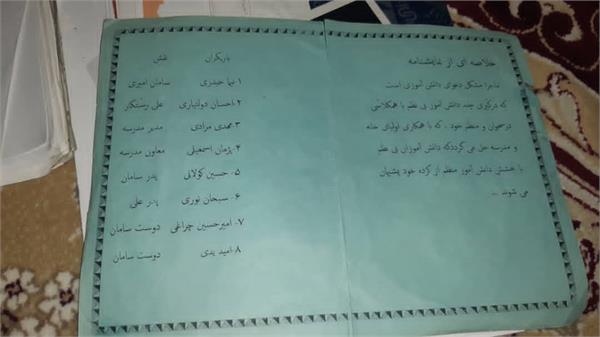 خلاصه ای از نمایشنامه
ماجرا مشکل دعوای دانش آموزی است
که درگیری چند دانش آموز بی نظم با همکلاسی
درسخوان و منظم خود ، که با همکاری اولیای خانه
و مدرسه حل می گرددکه دانش آموزان بی نظم
با بخشش دانش آموز منظم از کرده خود پشیمان
می شوند ...
بازیگران نقش
۱-نیما حیدری سامان امیری
۲-احسان دولتیاری علی رستگار
۳-مهدی مرادی مدیر مدرسه
۴-پژمان اسمعیلی معاون مدرسه
۵- حسین کولانی پدر سامان
۶- سبحان نوری پدر علی
۷- امیرحسین چراغی دوست سامان
۸-امید یدی دوست سامان